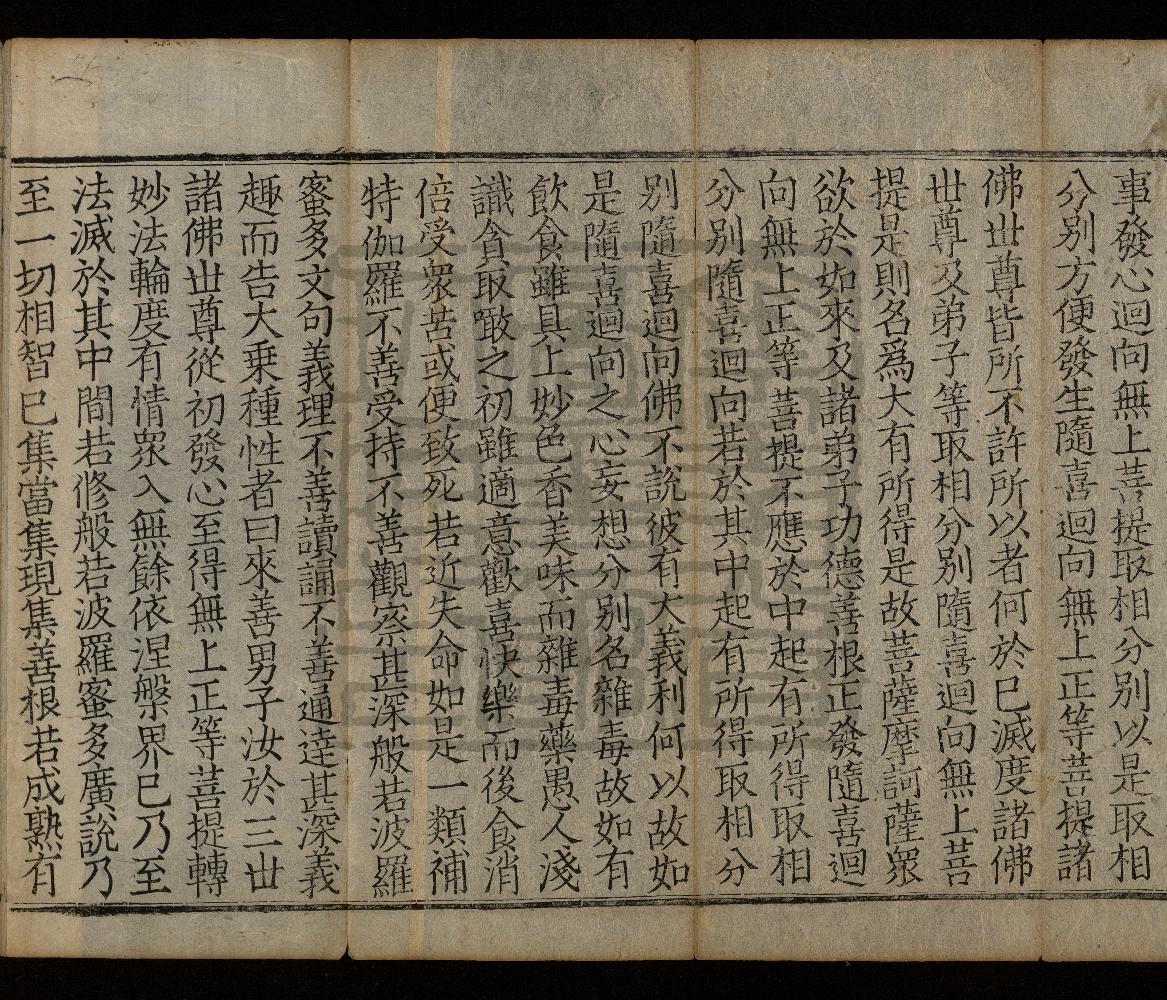 事發心迴向無上菩提取相分別以是取相
分別方便發生隨喜迴向無上正等菩提諸
佛世尊皆所不許所以者何於已滅度諸佛
世尊及弟子等取相分別隨喜迴向無上菩
提是則名爲大有所得是故菩薩摩訶薩衆
欲於如來及諸弟子功德善根正發隨喜迴
向無上正等菩提不應於中起有所得取相
分別隨喜迴向若於其中起有所得取相分
別隨喜迴向佛不說彼有大義利何以故如
是隨喜迴向之心妄想分別名雜毒故如有
飲食雖具上妙色香美味而雜毒藥愚人淺
識貪取噉之初雖適意歡喜快樂而後食消
倍受衆苦或便致死若近失命如是一類補
特伽羅不善受持不善觀察甚深般若波羅
蜜多文句義理不善讀誦不善通達甚深義
趣而告大乘種性者曰來善男子汝於三世
諸佛世尊從初發心至得無上正等菩提轉
妙法輪度有情衆入無餘依涅槃界已乃至
法滅於其中間若修般若波羅蜜多廣說乃
至一切相智已集當集現集善根若成熟有